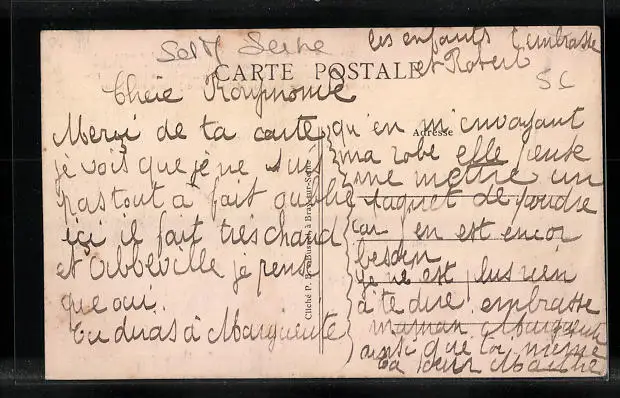 les enfants t'embrasse
et Robert
S&M Seine
CARTE POSTALE
SC
Chère Raymonde
Merçi de ta carte
je vois que je ne suis
pas tout à fait oublié
içi il fait très chaud
et Abbeville je pense
que oui.
Tu diras à Marguerite
Adresse
qu'en m'envoyant
ma robe elle peute
me mettre un
paquet de poudre
car j'en est encor
besoin
je ne est plus rien
à te dire embrasse
maman Marguerite
ainsi que toi même
ta sœur
Cliché P. à Bray-sur-Seine